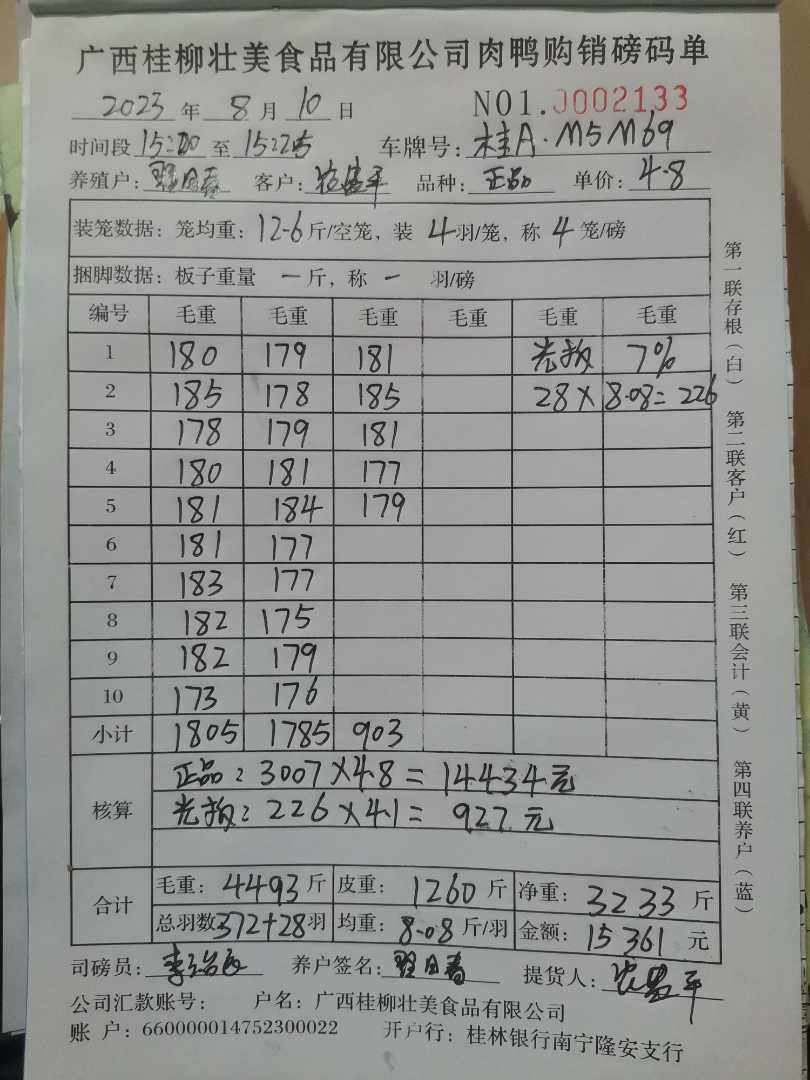 广西桂柳壮美食品有限公司肉鸭购销磅码单
2023 年 8 月 10 日 NO1.0002133
时间段 15:20 至 15:25 车牌号: 桂A·M5M69
养殖户: 客户: 品种: 正品 单价: 4.8
装笼数据: 笼均重: 12.6 斤/空笼, 装 4 羽/笼, 称 4 笼/磅
捆脚数据: 板子重量 一 斤, 称 一 羽/磅
编号 毛重 毛重 毛重 毛重 毛重 毛重
1 180 179 181 7%
2 185 178 185 28×8.08=226
3 178 179 181
4 180 181 177
5 181 184 179
6 181 177
7 183 177
8 182 175
9 182 179
10 173 176
小计 1805 1785 903
核算
正品: 3007×4.8=14434元
226×4.1=927元
合计
毛重: 4493 斤 皮重: 1260 斤 净重: 3233 斤
总羽数 372+28 羽 均重: 8.08 斤/羽 金额: 15361 元
司磅员: 养户签名: 提货人:
公司汇款账号: 户名: 广西桂柳壮美食品有限公司
账 户: 660000014752300022 开户行: 桂林银行南宁隆安支行
第一联存根(白) 第二联客户(红) 第三联会计(黄) 第四联养户(蓝)